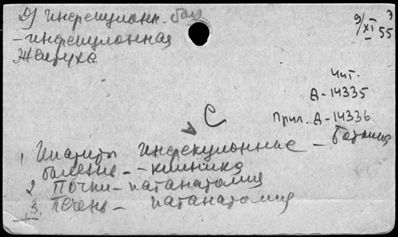 D) инфекционн. бол
9/XI 55
– инфекционная
желтуха
Чит.
А-14335
Прил. А-14336
С
1. Гепатиты инфекционные – Боткина
болезнь – клиника
2. Почки – патанатомия
3. Печень – патанатомия